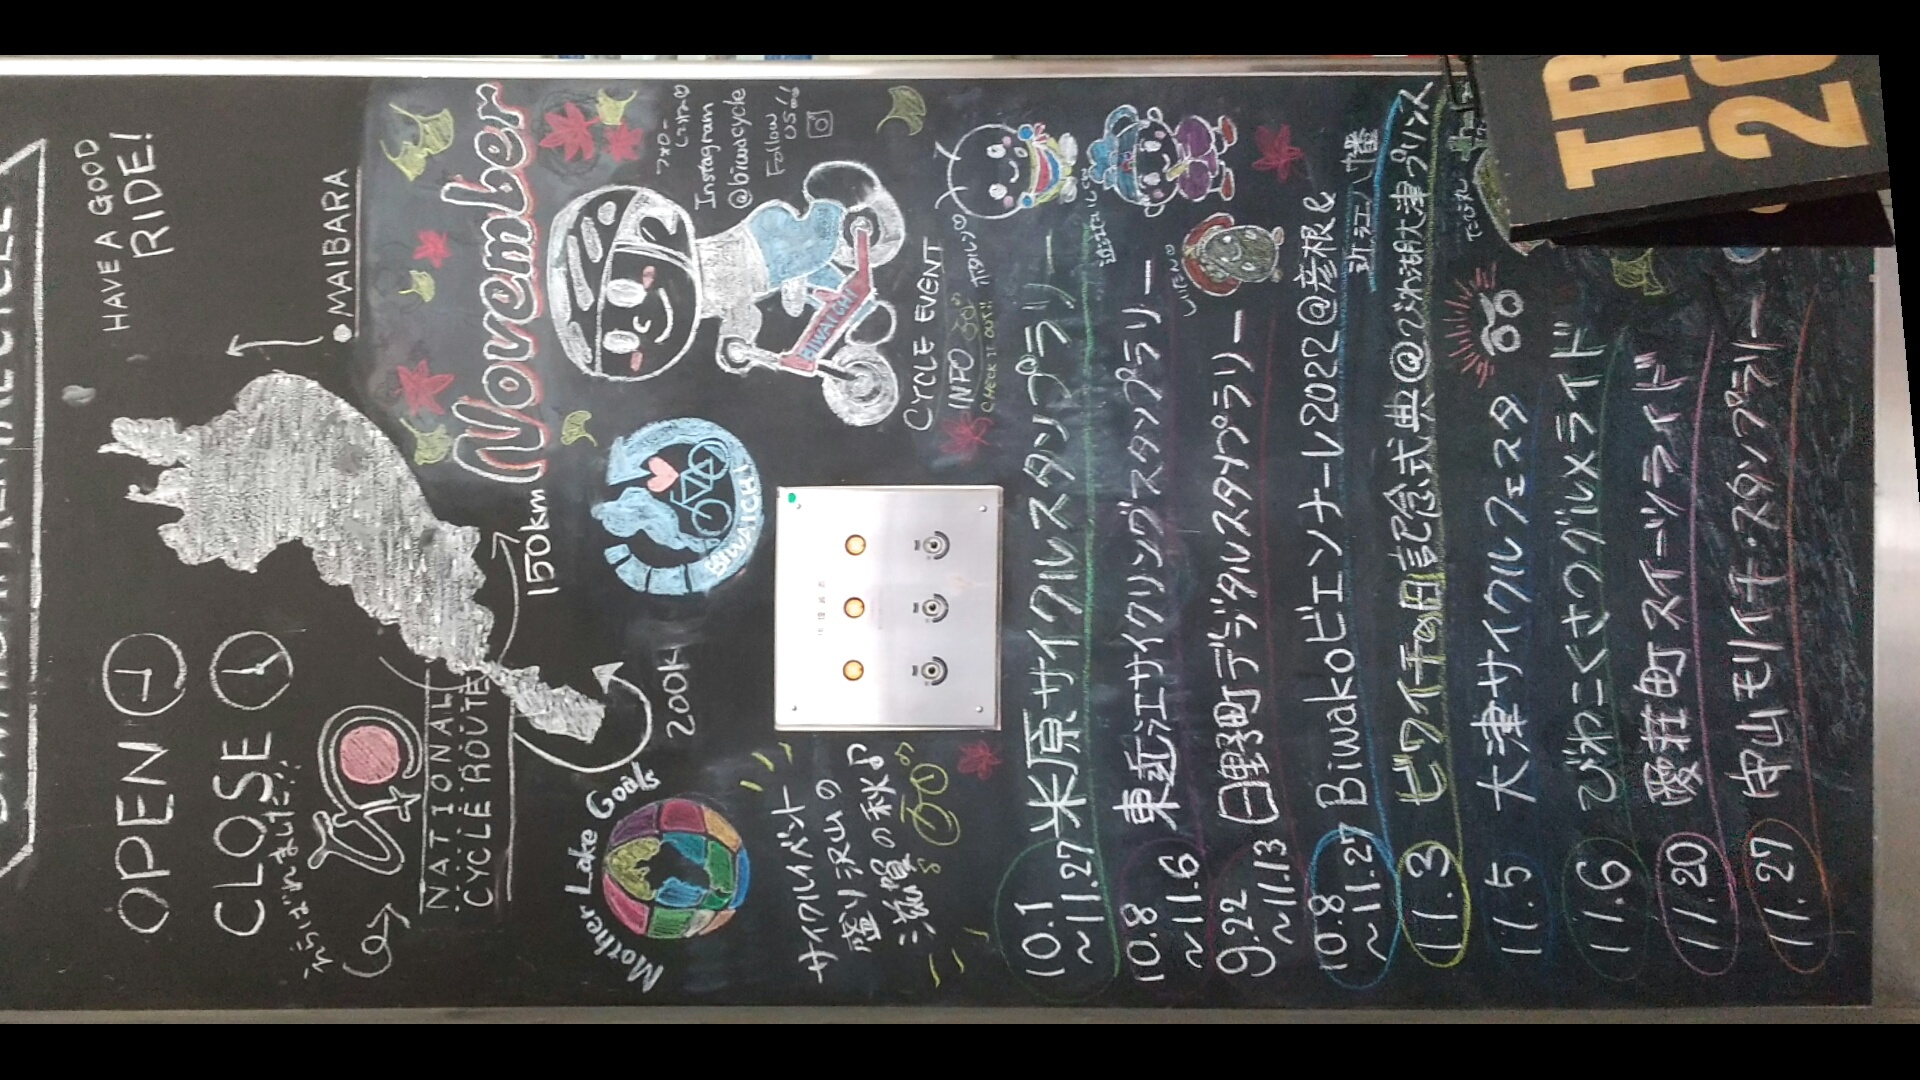 HAVE A GOOD
RIDE!
OPEN
CLOSE
えらばれました!!
NATIONAL
CYCLE ROUTE
MAIBARA
November
150km
200km
BIWAICHI
Mother Lake Goals
フォロー
してね♡
Instagram
@biwacycle
Follow
US!!
BIWAICHI
サイクルイベント
盛り沢山の
滋賀の秋♪
CYCLE EVENT
INFO
CHECK IT OUT!!
10.1
~11.27 米原サイクルスタンプラリー
10.8
~11.6 東近江サイクリングスタンプラリー
9.22
~11.13 日野町デジタルスタンプラリー
10.8
~11.27 Biwakoビエンナーレ2022@彦根&
近江八幡
11.3 ビワイチの日記念式典@びわ湖大津プリンス
11.5 大津サイクルフェスタ
11.6 びわこくさつグルメライド
11.20 愛荘町スイーツライド
11.27 守山モリイチ・スタンプラリー
TR
20